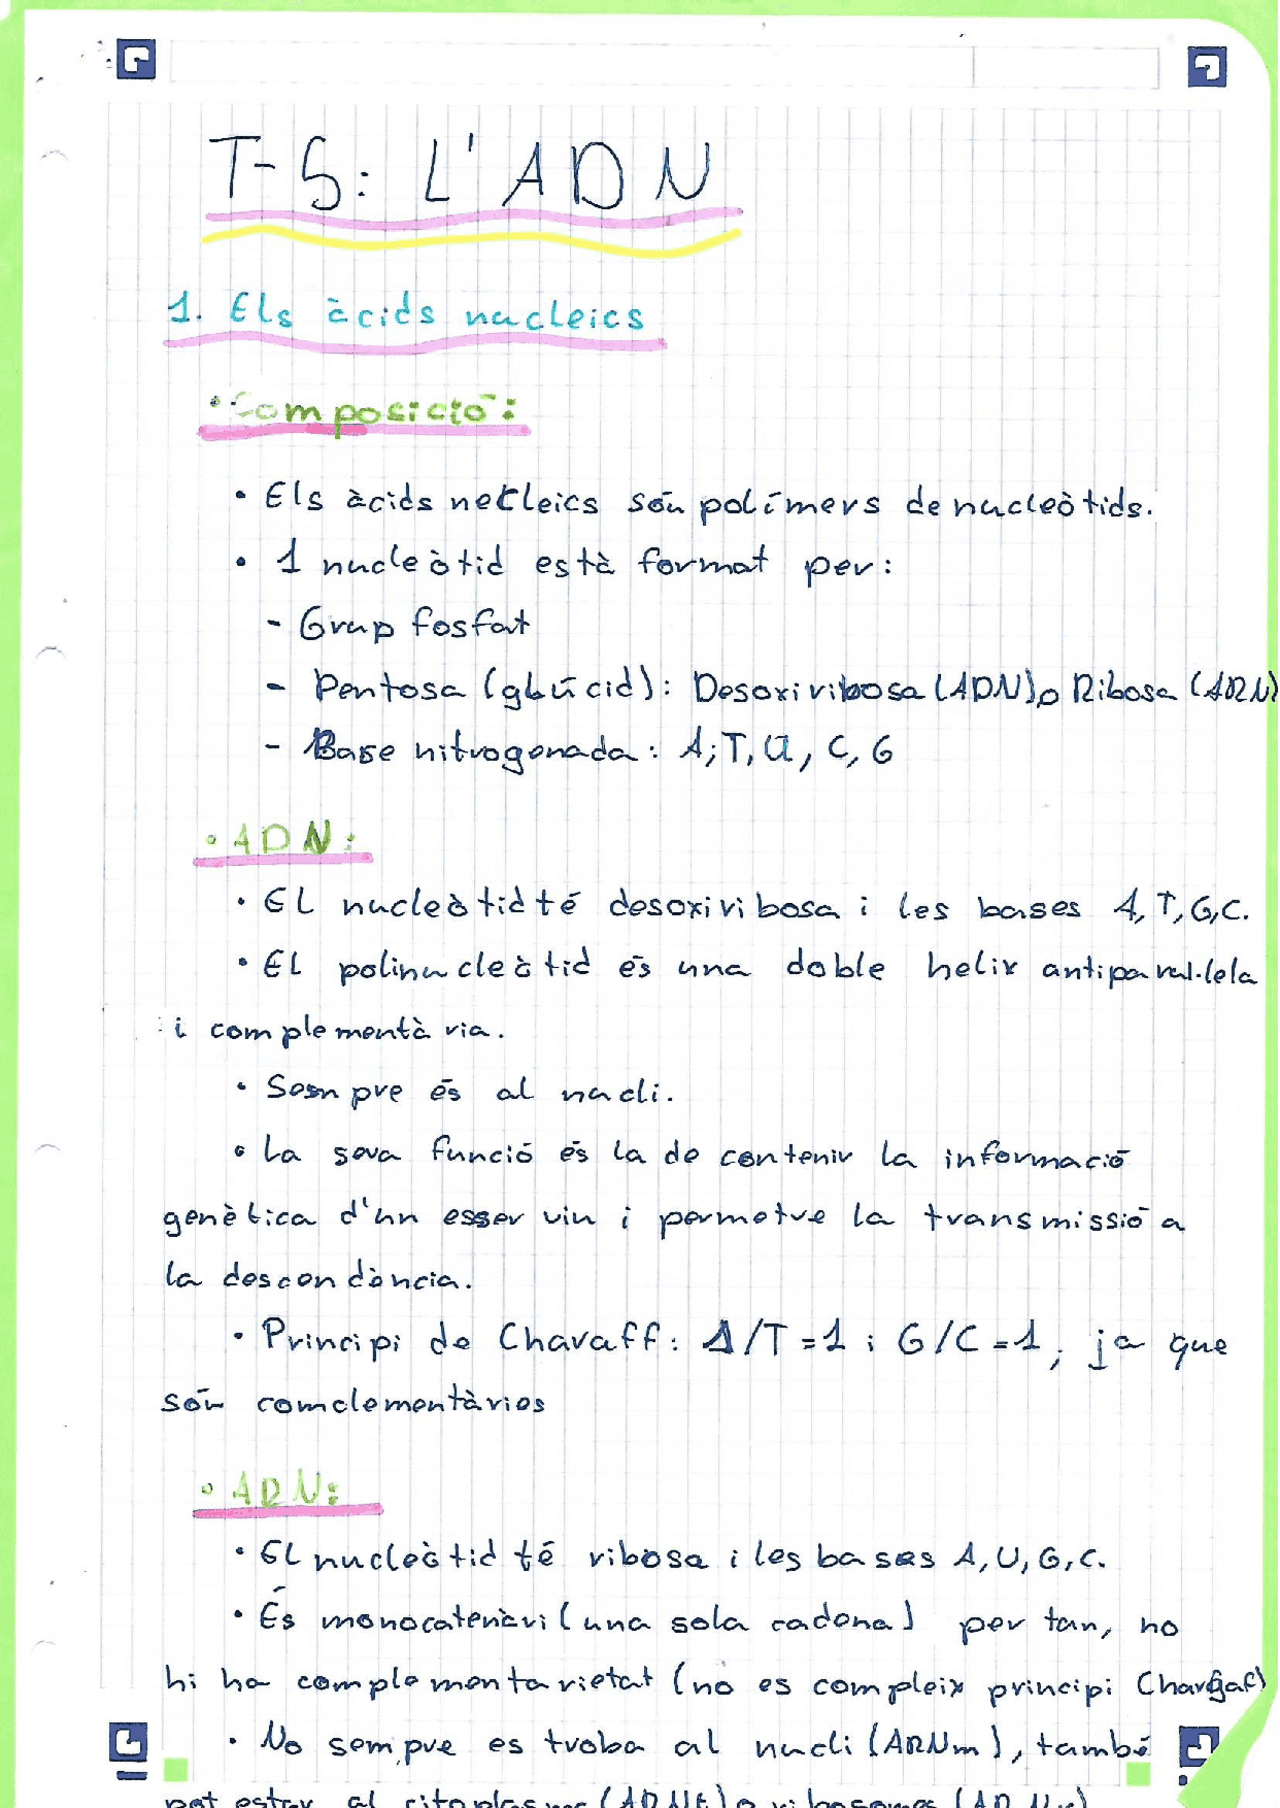 T-5: L'ADN
1. Els àcids nucleics
• Composició:
• Els àcids nucleics són polímers de nucleòtids.
• 1 nucleòtid està format per:
- Grup fosfat
- Pentosa (glúcid): Desoxiribosa (ADN) o Ribosa (ARN)
- Base nitrogenada: A, T, U, C, G
• ADN:
• El nucleòtid té desoxiribosa i les bases A, T, G, C.
• El polinucleòtid és una doble helix antiparal·lela
i complementària.
• Sempre és al nucli.
• La seva funció és la de contenir la informació
genètica d'un esser viu i permetre la transmissió a
la descendència.
• Principi de Charaff: A/T = 1 i G/C = 1, ja que
són comclementàries
• ARN:
• El nucleòtid té ribosa i les bases A, U, G, C.
• És monocatenàri (una sola cadena) per tan, no
hi ha complementarietat (no es compleix principi Chargaf)
• No sempre es troba al nucli (ARNm), també
pot estar al citoplasma (ARNt) o ribosomes (ARNr)